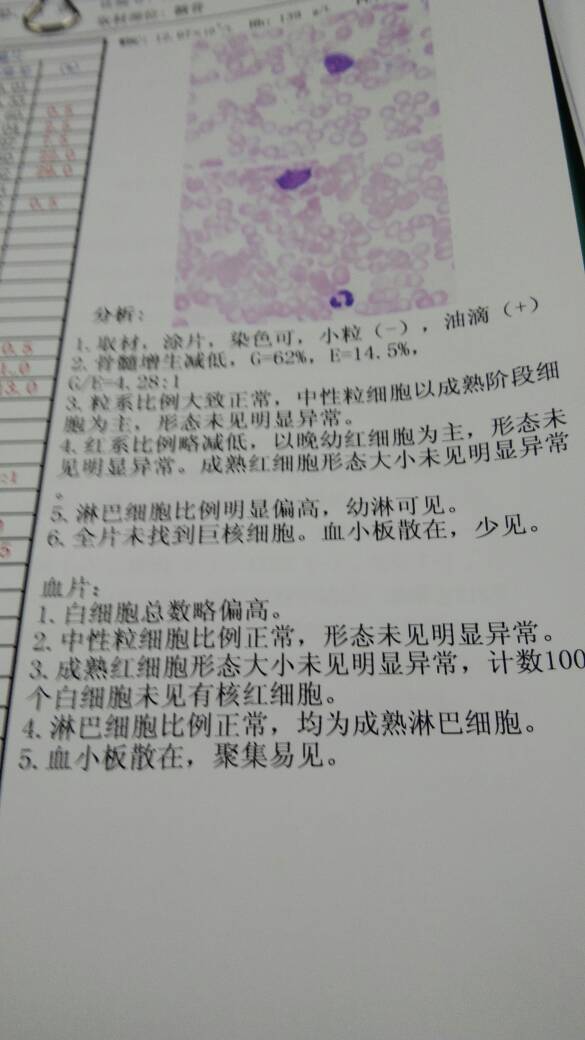 取材部位：髂骨
分析：
1.取材，涂片，染色可，小粒（-），油滴（+）
2.骨髓增生减低，G=62%，E=14.5%，
G/E=4.28:1
3.粒系比例大致正常，中性粒细胞以成熟阶段细
胞为主，形态未见明显异常。
4.红系比例略减低，以晚幼红细胞为主，形态未
见明显异常。成熟红细胞形态大小未见明显异常
。
5.淋巴细胞比例明显偏高，幼淋可见。
6.全片未找到巨核细胞。血小板散在，少见。
血片：
1.白细胞总数略偏高。
2.中性粒细胞比例正常，形态未见明显异常。
3.成熟红细胞形态大小未见明显异常，计数100
个白细胞未见有核红细胞。
4.淋巴细胞比例正常，均为成熟淋巴细胞。
5.血小板散在，聚集易见。